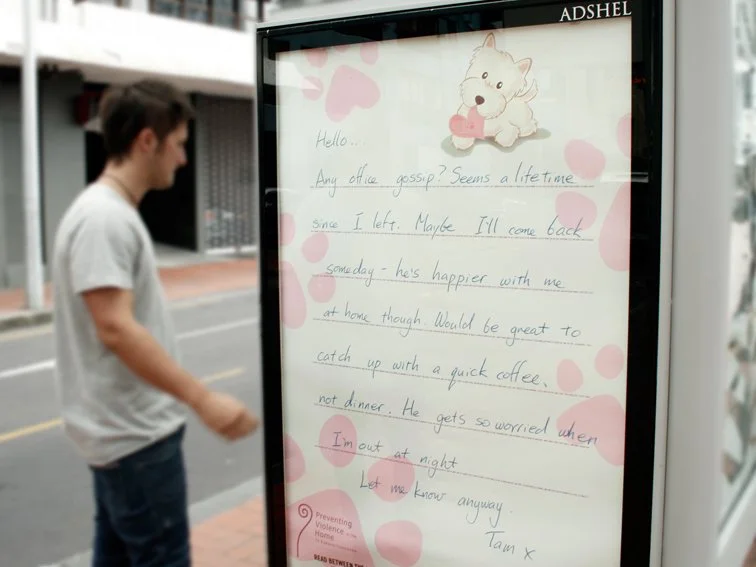 ADSHEL
Hello..
Any office gossip? Seems a lifetime
since I left. Maybe I'll come back
someday - he's happier with me
at home though. Would be great to
catch up with a quick coffee,
not dinner. He gets so worried when
I'm out at night
Let me know anyway.
Tam x
Preventing
Violence in the
Home
READ BETWEEN THE